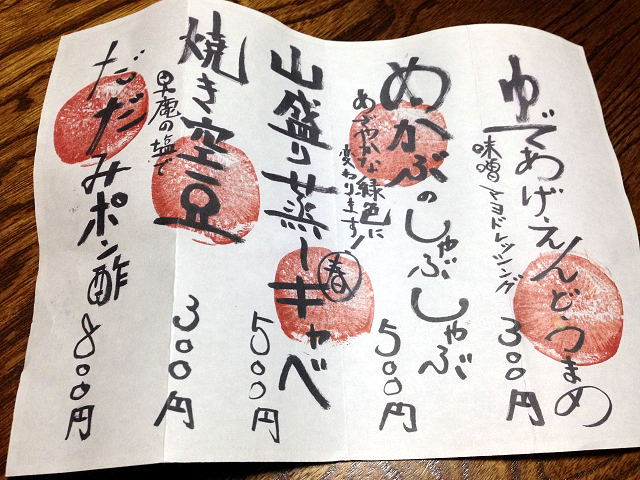 ゆであげ、えんどうまめ
味噌マヨドレッシング
300円
めかぶのしゃぶしゃぶ
あざやかな緑色に
変わります!
500円
山盛り蒸し
春
キャベ
500円
焼き空豆
早鹿の塩で
300円
だだみポン酢
800円